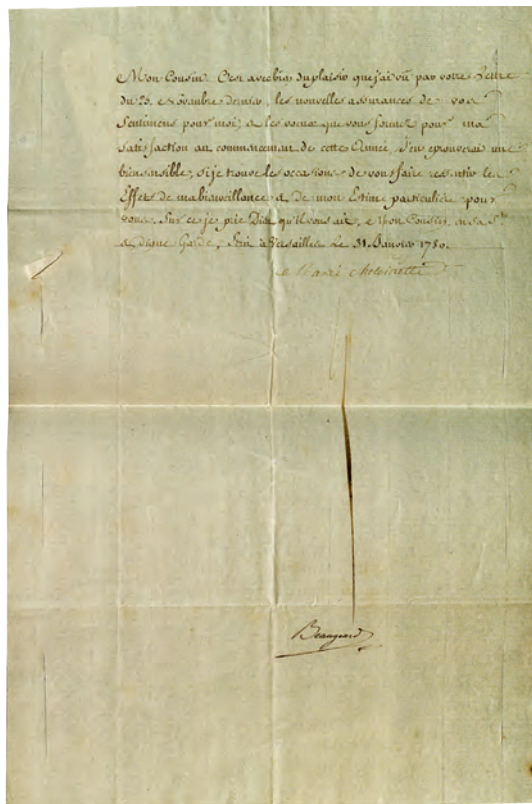 Mon Cousin. C'est avec bien du plaisir que j'ai vû par votre Lettre
du 25. Novambre dernier, les nouvelles assurances de vos
Sentimens pour moi, & les voeux que vous formés pour ma
satisfaction au commancemant de cette Année. J'en eprouverai une
bien sensible, si je trouve les occasions de vous faire ressentir les
Effets de ma bienveillance & de mon Estime particulière pour
vous. Sur ce je prie Dieu qu'il vous ait, Mon Cousin, en sa Ste
& digne Garde. Écrit à Versailles Le 31. Janvier 1780.
Marie Antoinette
Beaugeard